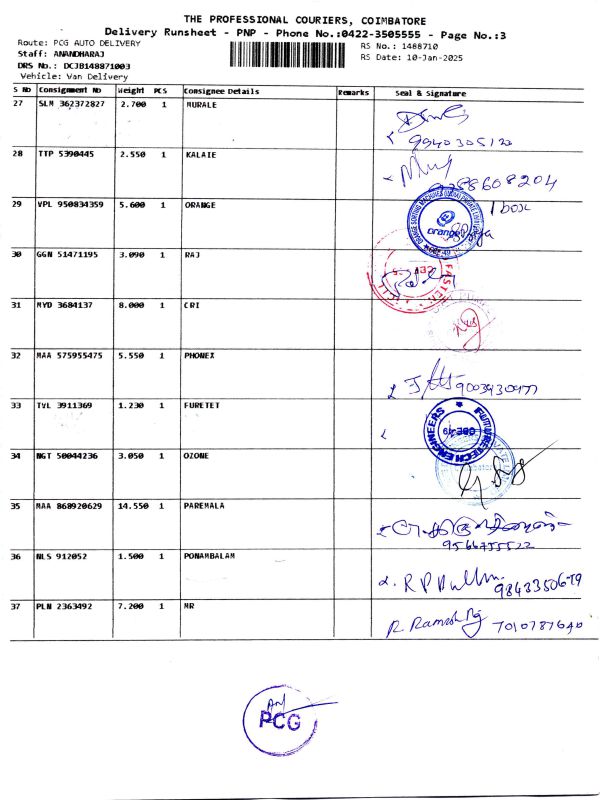 THE PROFESSIONAL COURIERS, COIMBATORE
Delivery Runsheet - PNP - Phone No.:0422-3505555 - Page No.:3
Route: PCG AUTO DELIVERY
RS No.: 1488710
Staff: ANANDHARAJ
RS Date: 10-Jan-2025
DRS No.: DCJB148871003
Vehicle: Van Delivery
S No Consignment No Weight PCS Consignee Details Remarks Seal & Signature
27 SLM 362372827 2.700 1 MURALE
9940305120
28 TTP 5390445 2.550 1 KALAIE
88608204
29 VPL 950834359 5.600 1 ORANGE
1 box
orange
30 GGN 51471195 3.090 1 RAJ
31 MYD 3684137 8.000 1 CRI
32 MAA 575955475 5.550 1 PHONEX
33 TVL 3911369 1.230 1 FURETET
FUTURETECH ENGINEERS
CBE-49
34 NGT 50044236 3.050 1 OZONE
35 MAA 868920629 14.550 1 PAREMALA
9566755522
36 NLS 912052 1.500 1 PONAMBALAM
9843350679
37 PLN 2363492 7.200 1 MR
R. Ramesh 7010787640
PCG